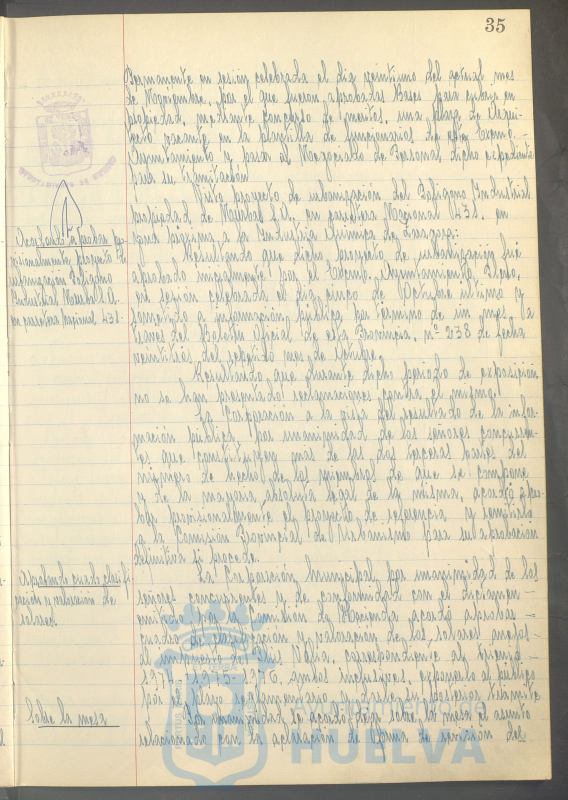 35
Permanente en sesión celebrada el dia veintiuno del actual mes
de Noviembre, por el que fueron aprobadas Bases para cubrir en
propiedad, mediante concurso de meritos, una plaza de Arqui-
tecto vacante en la plantilla de funcionarios de este Excmo.-
Ayuntamiento y pase al Negociado de Personal dicho expediente
para su tramitación
Visto proyecto de urbanización del Poligono Industrial
propiedad de S.A. en carretera Nacional 431. en
para próxima a la Industria Quimica de
Resultando que dicho proyecto de urbanización fué
aprobado inicialmente por el Excmo. Ayuntamiento Pleno,
en sesión celebrada el dia cinco de Octubre ultimo y
sometido a información pública por termino de un mes, a
traves del Boletin Oficial de esta Provincia, nº 238 de fecha
veintitrés del referido mes de Octubre.
Resultando, que durante dicho periodo de exposición
no se han presentado reclamaciones contra el mismo.
La Corporación a la vista del resultado de la infor-
mación pública, por unanimidad de los señores concurren-
tes que constituyen mas de las dos terceras partes del
número de hecho de los miembros de que se compone
y de la mayoria absoluta legal de la misma, acordó apro-
bar provisionalmente el proyecto de referencia y remitirlo
a la Comisión Provincial de Urbanismo para su aprobación
definitiva si procede.
La Corporación Municipal, por unanimidad de los
señores concurrentes y de conformidad con el dictamen
emitido por la Comisión de Hacienda acordó aprobar
cuadro de clasificación y valoración de los solares
al impuesto de Plus Valia, correspondiente al trienio
1974-1975-1976, ambos inclusives, exponerlo al público
por el plazo reglamentario y darle su posterior tramite
Por unanimidad se acordó dejar sobre la mesa el asunto
relacionado con la aclaración de forma de revisión del
Acordando aprobar pro-
visionalmente proyecto de
urbanización Poligono
Industrial S.A.
en carretera nacional 431.
Aprobando cuadro clasifi-
cación y valoración de
solares.
Sobre la mesa
Ayuntamiento de
HUELVA